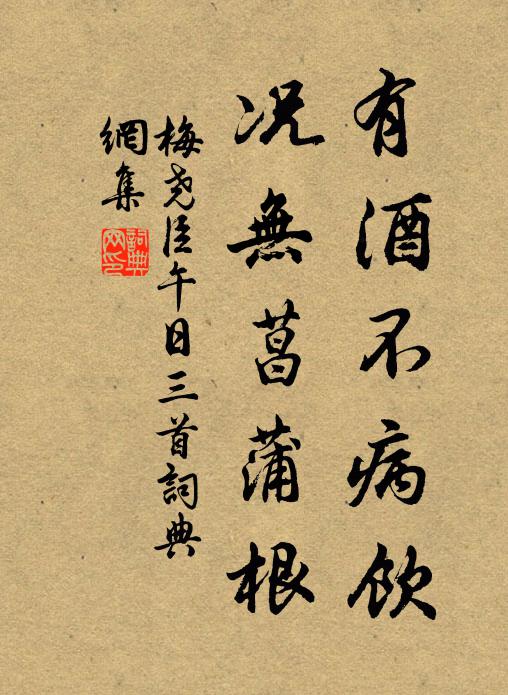 有酒不病飲
况無菖蒲根
梅堯臣午日三首詞典
網集
詞典
網印